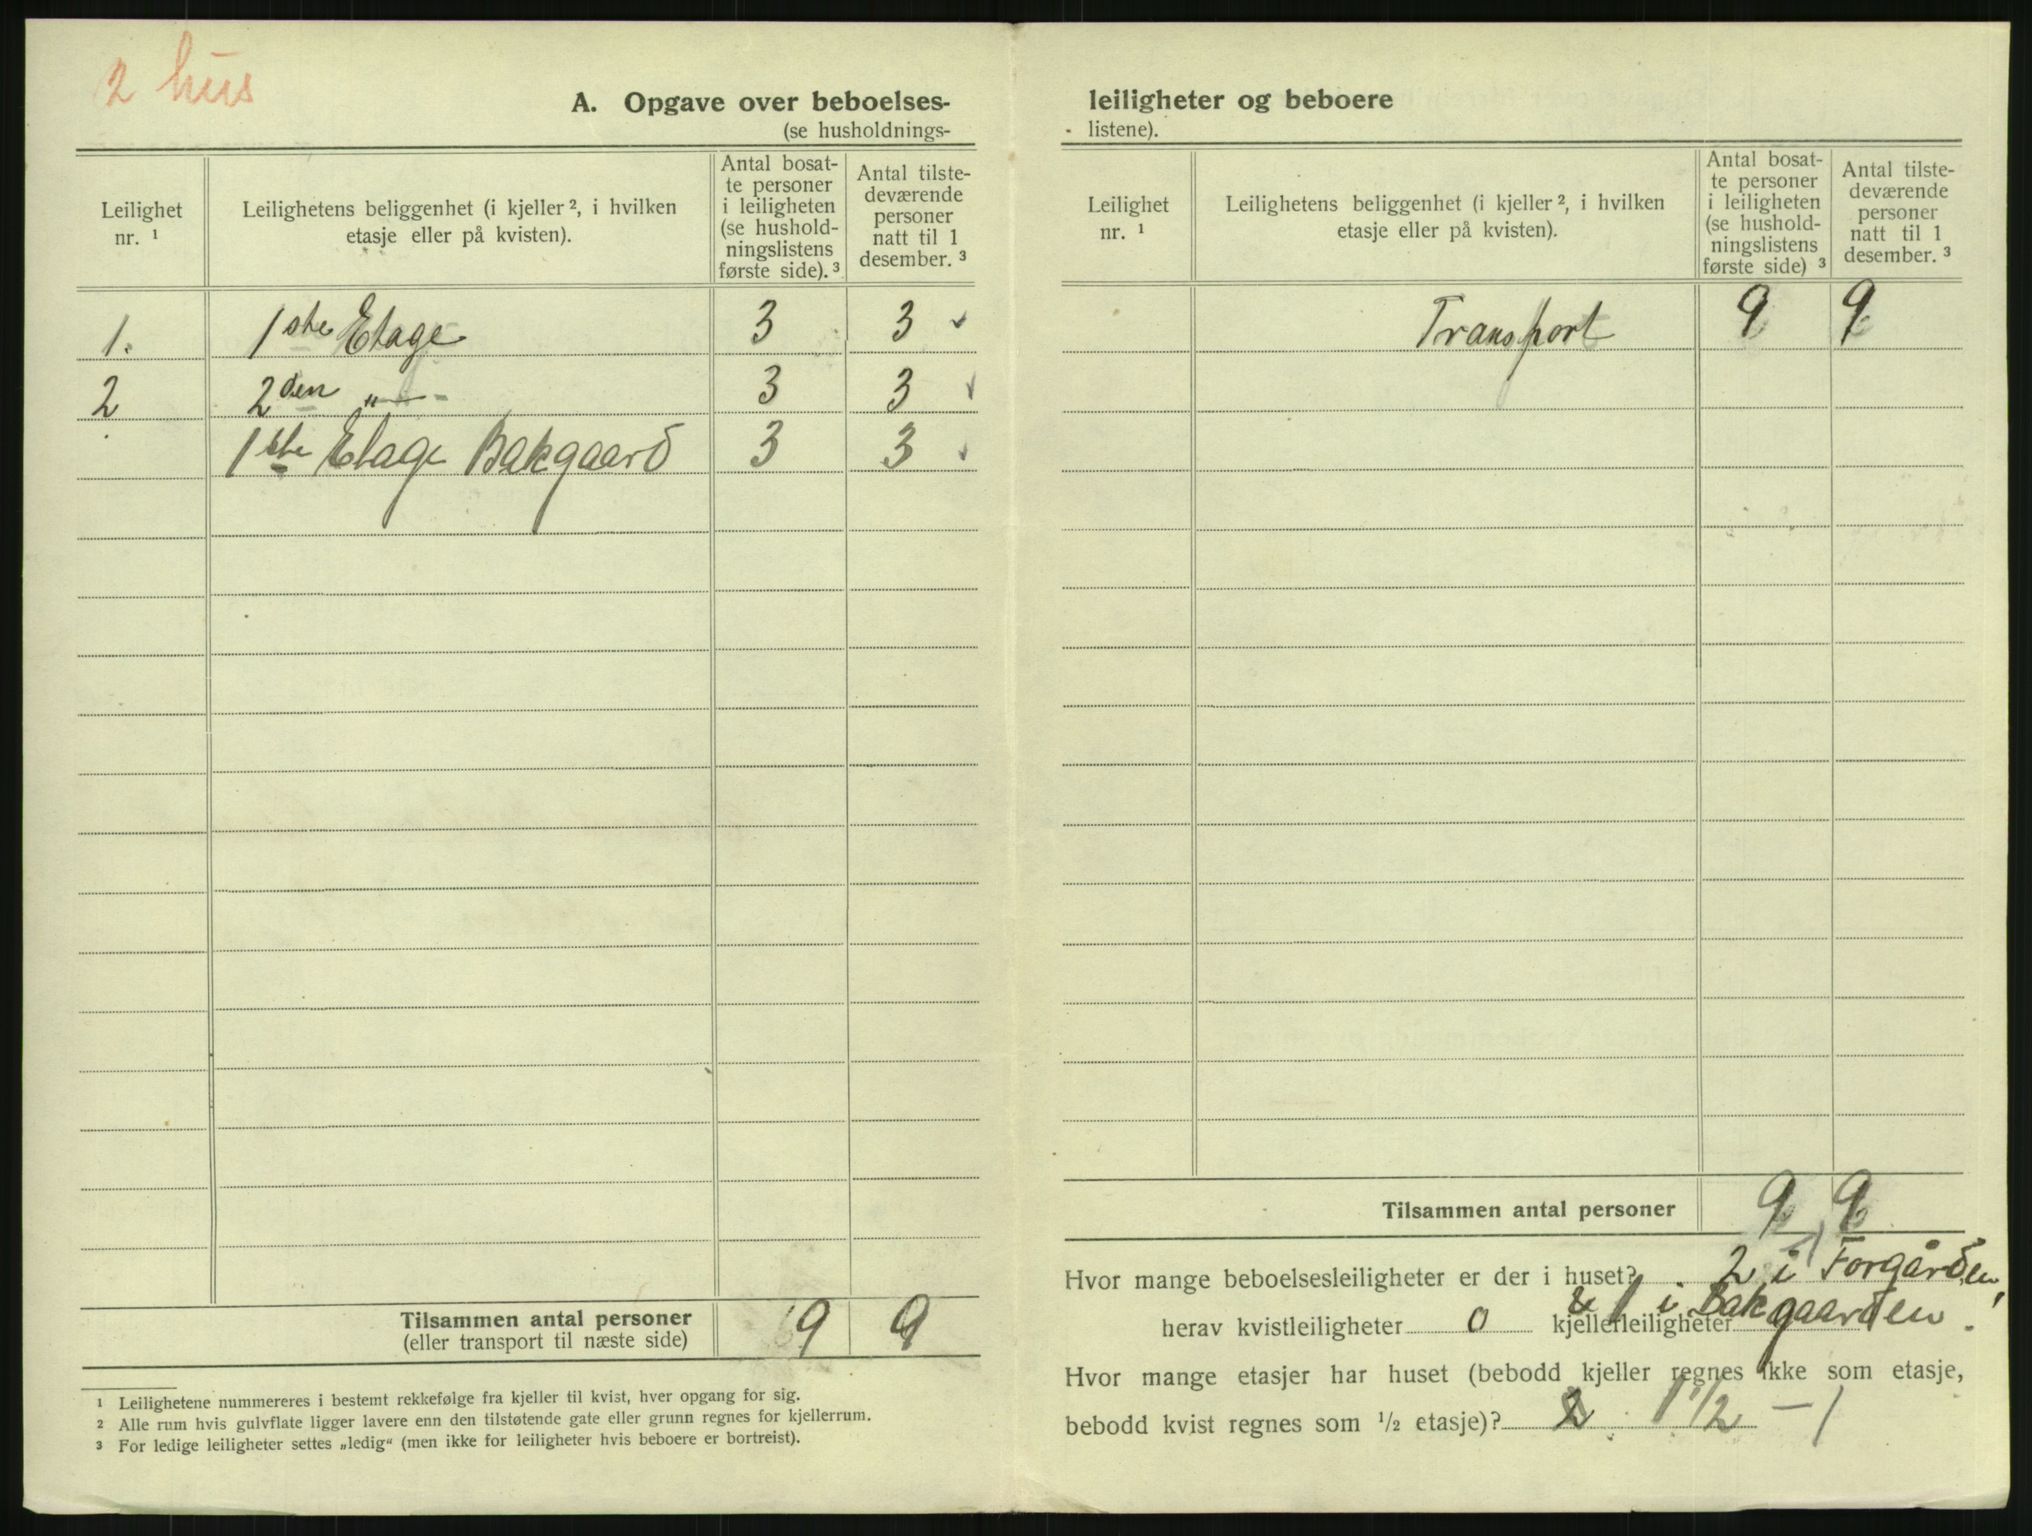 2 hus
A. Opgave over beboelses-
(se husholdnings-
Leilighet nr. ¹
Leilighetens beliggenhet (i kjeller ², i hvilken etasje eller på kvisten).
Antal bosat-
te personer
i leiligheten
(se hushold-
ningslistens
første side). ³
Antal tilste-
deværende
personer
natt til 1
desember. ³
1. 1ste Etage 3 3 ✓
2 2den „— - 3 3 ✓
1ste Etage Bakgaard 3 3 ✓
Tilsammen antal personer 9 9
(eller transport til næste side)
¹ Leilighetene nummereres i bestemt rekkefølge fra kjeller til kvist, hver opgang for sig.
² Alle rum hvis gulvflate ligger lavere enn den tilstøtende gate eller grunn regnes for kjellerrum.
³ For ledige leiligheter settes „ledig“ (men ikke for leiligheter hvis beboere er bortreist).
leiligheter og beboere
- listene).
Leilighet nr. ¹
Leilighetens beliggenhet (i kjeller ², i hvilken etasje eller på kvisten).
Antal bosat-
te personer
i leiligheten
(se hushold-
ningslistens
første side) ³
Antal tilste-
deværende
personer
natt til 1
desember. ³
Transport 9 9
Tilsammen antal personer 9 9
Hvor mange beboelsesleiligheter er der i huset? 2 i Forgården,
& 1 i Bakgaarden.
herav kvistleiligheter 0 kjellerleiligheter
Hvor mange etasjer har huset (bebodd kjeller regnes ikke som etasje,
bebodd kvist regnes som ½ etasje)? 2 1 1/2 - 1